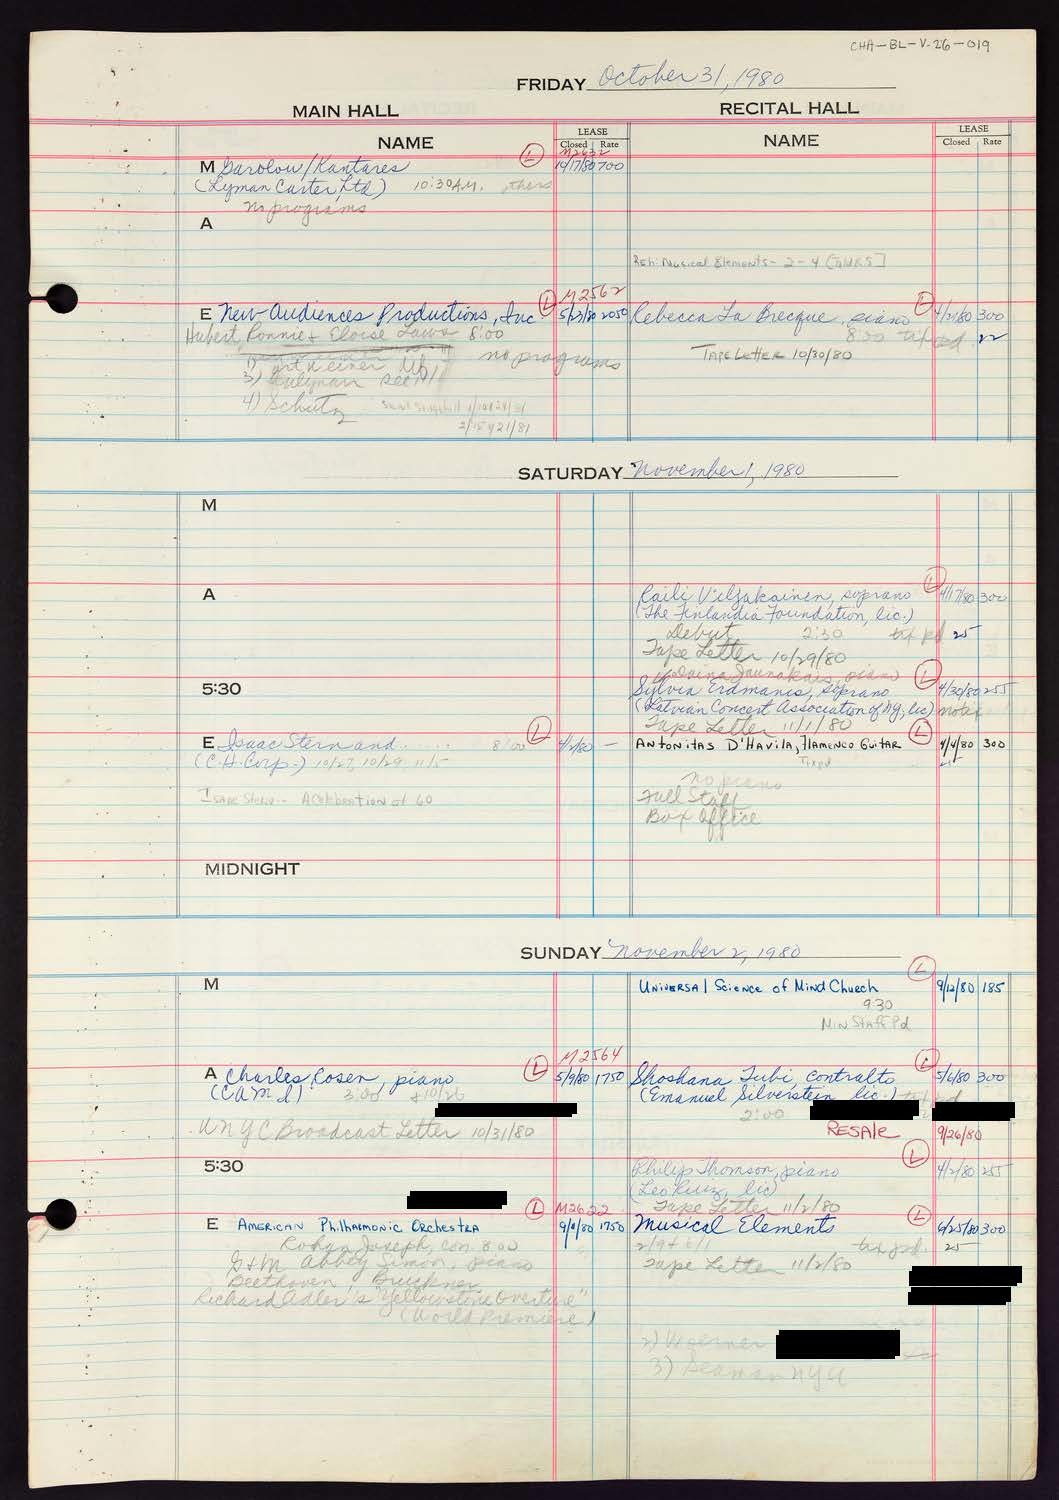 CHA-BL-V.26-019
FRIDAY October 31, 1980
MAIN HALL
RECITAL HALL
NAME
LEASE
Closed Rate
NAME
LEASE
Closed Rate
L M2632
M Garolou/Kantares 700
(Lyman Carter, Ltd) 10:30 A.M.
no programs
A
Reh: Musical Elements - 2-4
L M2562
E New Audiences Productions, Inc 2050
Hubert, Ronnie + Eloise Laws 8:00
no programs
4) Schutz
2/15 4/21/81
L
Rebecca La Brecque, piano 300
8:00 22
TAPE LETTER 10/30/80
SATURDAY November 1, 1980
M
A
L
Raili Viljakainen, soprano 4/17/80 300
(The Finlandia Foundation, lic.)
Debut 2:30 25
Tape Letter 10/29/80
5:30
L
piano
Sylvia Erdmanis, soprano 4/30/80 255
(Latvian Concert Association of NY, lic)
Tape Letter 11/1/80
L
E Isaac Stern and 8:00 4/2/80 —
(C.H. Corp.) 10/27, 10/29, 11/5
Isaac Stern - A Celebration at 60
L
ANTONITAS D'HAVILA, FLAMENCO GUITAR 4/4/80 300
no piano
Full Staff
Box Office
MIDNIGHT
SUNDAY November 2, 1980
M
L
UNIVERSAl SCIENCE OF MIND CHURCH 9/12/80 185
9:30
MIN STAFF Pd
L M2564
A Charles Rosen, piano 5/9/80 1750
(CAMI) 3:00
WNYC Broadcast Letter 10/31/80
L
Shoshana Tubi, contralto 5/6/80 300
(Emanuel Silverstein, lic.)
2:00
RESAlE 9/26/80
5:30
L
Philip Thomson, piano 4/2/80 255
(Leo Ruiz, lic)
Tape Letter 11/2/80
L M2622
E AMERICAN PhilhARMONIC ORChESTRA 1750
Rohan Joseph, con. 8:00
Abbey Simon, piano
Beethoven, Bruckner
Richard Adler's "Yellowstone Overture"
(World Premiere)
L
Musical Elements 6/25/80 300
25
Tape Letter 11/2/80
2) Woerner
3) Seaman NYU